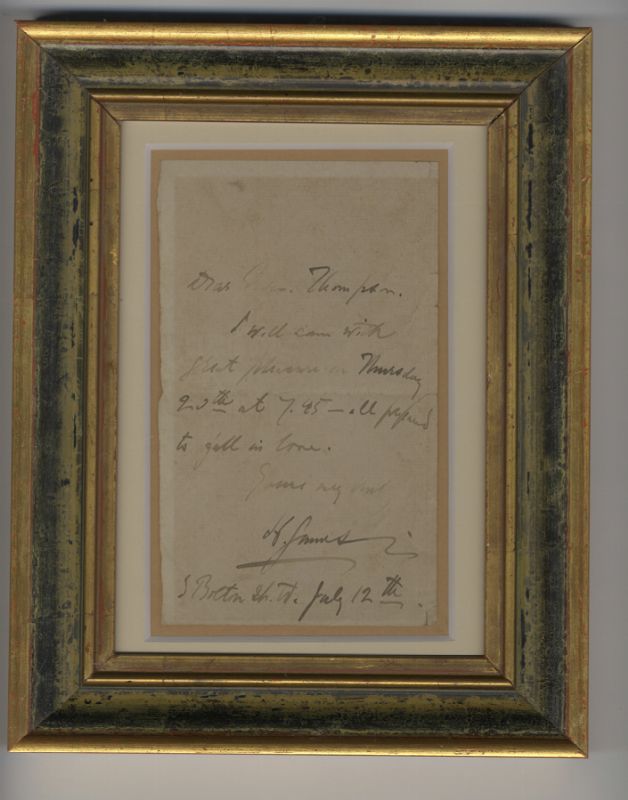 Dear Mrs. Thompson.
I will come with
great pleasure on Thursday
20th at 7.45 — all prepared
to fall in love.
Yours very truly
H. James
3 Bolton St. W. July 12th.